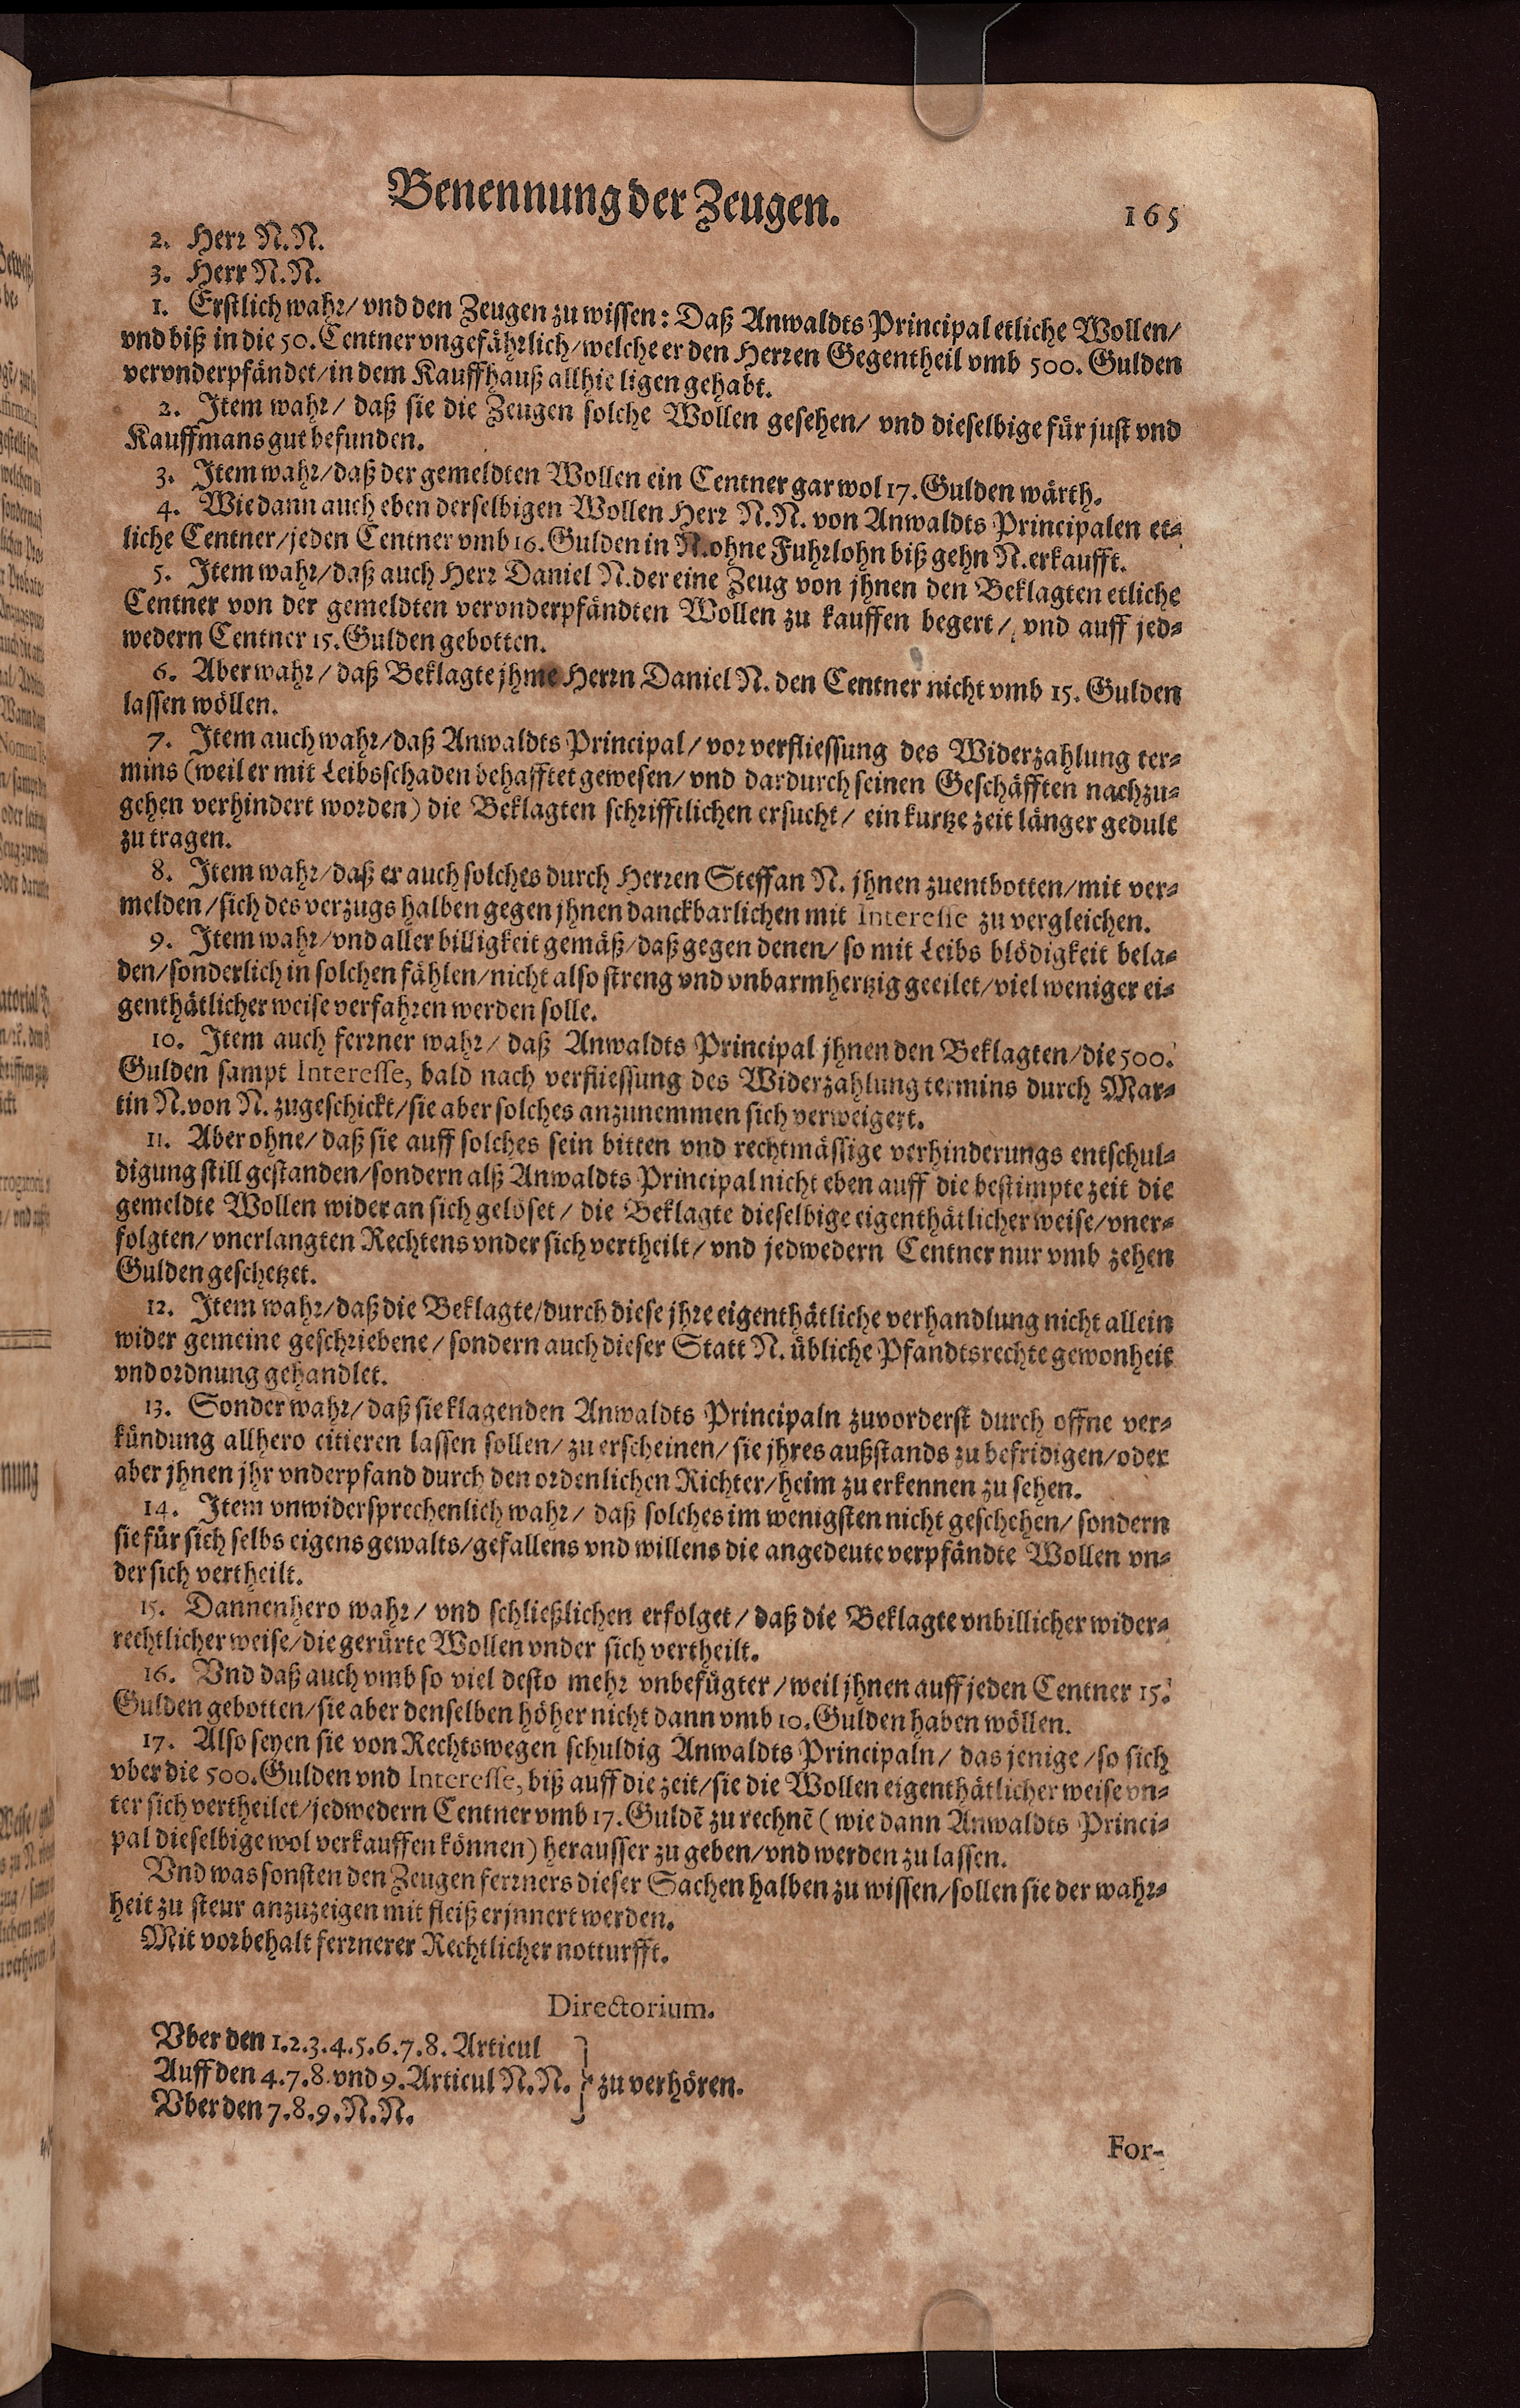 Benennung der Zeugen.
165
2. Herr N. N.
3. Herr N. N.
1. Erstlich wahr/ vnd den Zeugen zu wissen: Daß Anwaldts Principal etliche Wollen/
vnd biß in die 50. Centner vngefährlich/ welche er den Herren Gegentheil vmb 500. Gulden
vervnderpfändet/ in dem Kauffhauß allhie ligen gehabt.
2. Item wahr/ daß sie die Zeugen solche Wollen gesehen/ vnd dieselbige für just vnd
Kauffmansgut befunden.
3. Item wahr/ daß der gemeldten Wollen ein Centner gar wol 17. Gulden wärth.
4. Wie dann auch eben derselbigen Wollen Herr N. N. von Anwaldts Principalen et-
liche Centner/ jeden Centner vmb 16. Gulden in N. ohne Fuhrlohn biß gehn N. erkaufft.
5. Item wahr/ daß auch Herr Daniel N. der eine Zeug von jhnen den Beklagten etliche
Centner von der gemeldten vervnderpfändten Wollen zu kauffen begert/ vnd auff jed-
wedern Centner 15. Gulden gebotten.
6. Aber wahr/ daß Beklagte jhme Herrn Daniel N. den Centner nicht vmb 15. Gulden
lassen wöllen.
7. Item auch wahr/ daß Anwaldts Principal/ vor verfliessung des Widerzahlung ter-
mins (weil er mit Leibsschaden behafftet gewesen/ vnd dardurch seinen Geschäfften nachzu-
gehen verhindert worden) die Beklagten schrifftlichen ersucht/ ein kurtze zeit länger gedult
zu tragen.
8. Item wahr/ daß er auch solches durch Herren Steffan N. jhnen zuentbotten/ mit ver-
melden/ sich des verzugs halben gegen jhnen danckbarlichen mit Interesse zu vergleichen.
9. Item wahr/ vnd aller billigkeit gemäß/ daß gegen denen/ so mit Leibs blödigkeit bela-
den/ sonderlich in solchen fählen/ nicht also streng vnd vnbarmhertzig geeilet/ viel weniger ei-
genthätlicher weise verfahren werden solle.
10. Item auch ferrner wahr/ daß Anwaldts Principal jhnen den Beklagten/ die 500.
Gulden sampt Interesse, bald nach verfliessung des Widerzahlung termins durch Mar-
tin N. von N. zugeschickt/ sie aber solches anzunemmen sich verweigert.
11. Aber ohne/ daß sie auff solches sein bitten vnd rechtmässige verhinderungs entschul-
digung still gestanden/ sondern alß Anwaldts Principal nicht eben auff die bestimpte zeit die
gemeldte Wollen wider an sich gelöset/ die Beklagte dieselbige eigenthätlicher weise/ vner-
folgten/ vnerlangten Rechtens vnder sich vertheilt/ vnd jedwedern Centner nur vmb zehen
Gulden geschetzet.
12. Item wahr/ daß die Beklagte/ durch diese jhre eigenthätliche verhandlung nicht allein
wider gemeine geschriebene/ sondern auch dieser Statt N. übliche Pfandtsrechte gewonheit
vnd ordnung gehandlet.
13. Sonder wahr/ daß sie klagenden Anwaldts Principaln zuvorderst durch offne ver-
kündung allhero citieren lassen sollen/ zu erscheinen/ sie jhres außstands zu befridigen/ oder
aber jhnen jhr vnderpfand durch den ordenlichen Richter/ heim zu erkennen zu sehen.
14. Item vnwidersprechenlich wahr/ daß solches im wenigsten nicht geschehen/ sondern
sie für sich selbs eigens gewalts/ gefallens vnd willens die angedeute verpfändte Wollen vn-
der sich vertheilt.
15. Dannenhero wahr/ vnd schließlichen erfolget/ daß die Beklagte vnbillicher wider-
rechtlicher weise/ die gerürte Wollen vnder sich vertheilt.
16. Vnd daß auch vmb so viel desto mehr vnbefügter/ weil jhnen auff jeden Centner 15.
Gulden gebotten/ sie aber denselben höher nicht dann vmb 10. Gulden haben wöllen.
17. Also seyen sie von Rechtswegen schuldig Anwaldts Principaln/ das jenige/ so sich
vber die 500. Gulden vnd Interesse, biß auff die zeit/ sie die Wollen eigenthätlicher weise vn-
ter sich vertheilet/ jedwedern Centner vmb 17. Guldē zu rechnē (wie dann Anwaldts Princi-
pal dieselbige wol verkauffen können) herausser zu geben/ vnd werden zu lassen.
Vnd was sonsten den Zeugen ferrners dieser Sachen halben zu wissen/ sollen sie der wahr-
heit zu steur anzuzeigen mit fleiß erjnnert werden.
Mit vorbehalt ferrnerer Rechtlicher notturfft.
Directorium.
Vber den 1. 2. 3. 4. 5. 6. 7. 8. Articul
Auff den 4. 7. 8. vnd 9. Articul N. N. } zu verhören.
Vber den 7. 8. 9. N. N.
For-